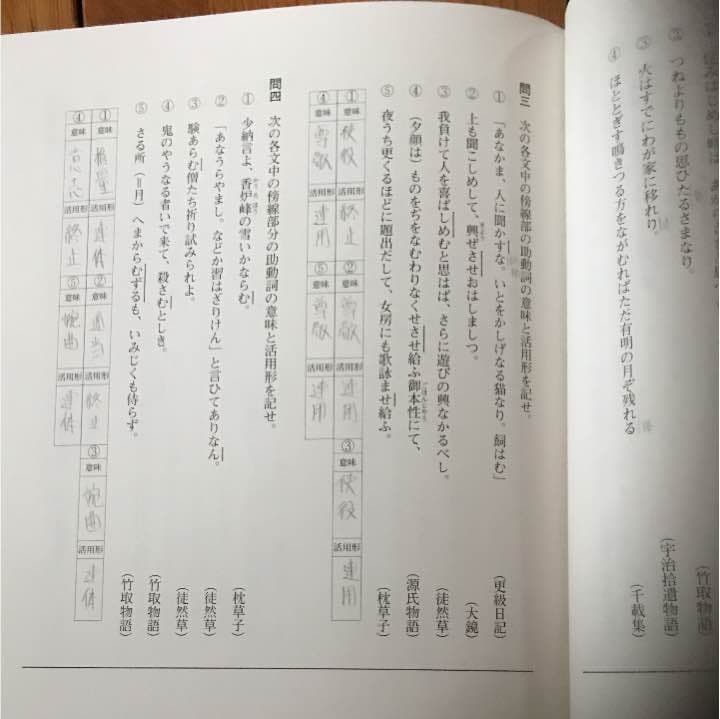 ② つねよりもの思ひたるさまなり。
(竹取物語)
③ 火はすでにわが家に移れり。
(宇治拾遺物語)
④ ほととぎす鳴きつる方をながむればただ有明の月ぞ残れる
(千載集)
問三 次の各文中の傍線部の助動詞の意味と活用形を記せ。
① 「あなかま、人に聞かすな。いとをかしげなる猫なり。飼はむ」
(更級日記)
② 上も聞こしめして、興ぜさせおはしましつ。
(大鏡)
③ 我負けて人を喜ばしめむと思はば、さらに遊びの興なかるべし。
(徒然草)
④ (夕顔は)ものをぢをなむわりなくせさせ給ふ御本性にて、
(源氏物語)
⑤ 夜うち更くるほどに題出だして、女房にも歌詠ませ給ふ。
(枕草子)
① 意味 使役 活用形 終止 ② 意味 尊敬 活用形 連用 ③ 意味 使役 活用形 連用
④ 意味 尊敬 活用形 連用 ⑤ 意味 尊敬 活用形 連用
問四 次の各文中の傍線部分の助動詞の意味と活用形を記せ。
① 少納言よ、香炉峰の雪いかならむ。
(枕草子)
② 「あなうらやまし。などか習はざりけん」と言ひてありなん。
(徒然草)
③ 験あらむ僧たち祈り試みられよ。
(徒然草)
④ 鬼のやうなる者いで来て、殺さむとしき。
(竹取物語)
⑤ さる所(=月)へまからむずるも、いみじくも侍らず。
(竹取物語)
① 意味 推量 活用形 連体 ② 意味 適当 活用形 終止 ③ 意味 婉曲 活用形 連体
④ 意味 意志 活用形 終止 ⑤ 意味 婉曲 活用形 連体